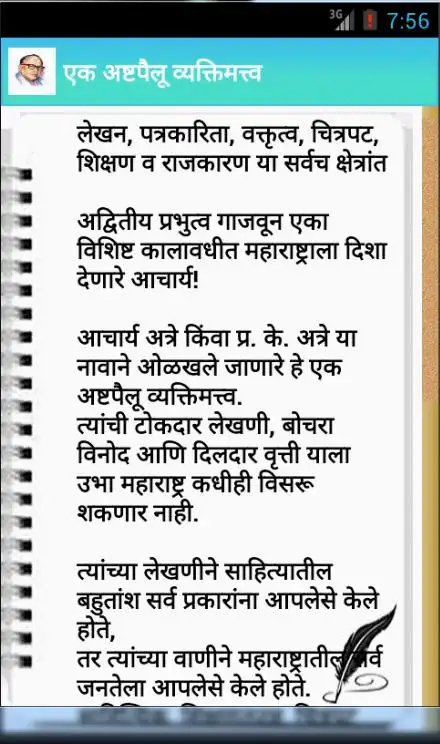 3G 7:56
एक अष्टपैलू व्यक्तिमत्त्व
लेखन, पत्रकारिता, वक्तृत्व, चित्रपट,
शिक्षण व राजकारण या सर्वच क्षेत्रांत
अद्वितीय प्रभुत्व गाजवून एका
विशिष्ट कालावधीत महाराष्ट्राला दिशा
देणारे आचार्य!
आचार्य अत्रे किंवा प्र. के. अत्रे या
नावाने ओळखले जाणारे हे एक
अष्टपैलू व्यक्तिमत्त्व.
त्यांची टोकदार लेखणी, बोचरा
विनोद आणि दिलदार वृत्ती याला
उभा महाराष्ट्र कधीही विसरू
शकणार नाही.
त्यांच्या लेखणीने साहित्यातील
बहुतांश सर्व प्रकारांना आपलेसे केले
होते,
तर त्यांच्या वाणीने महाराष्ट्रातील सर्व
जनतेला आपलेसे केले होते.